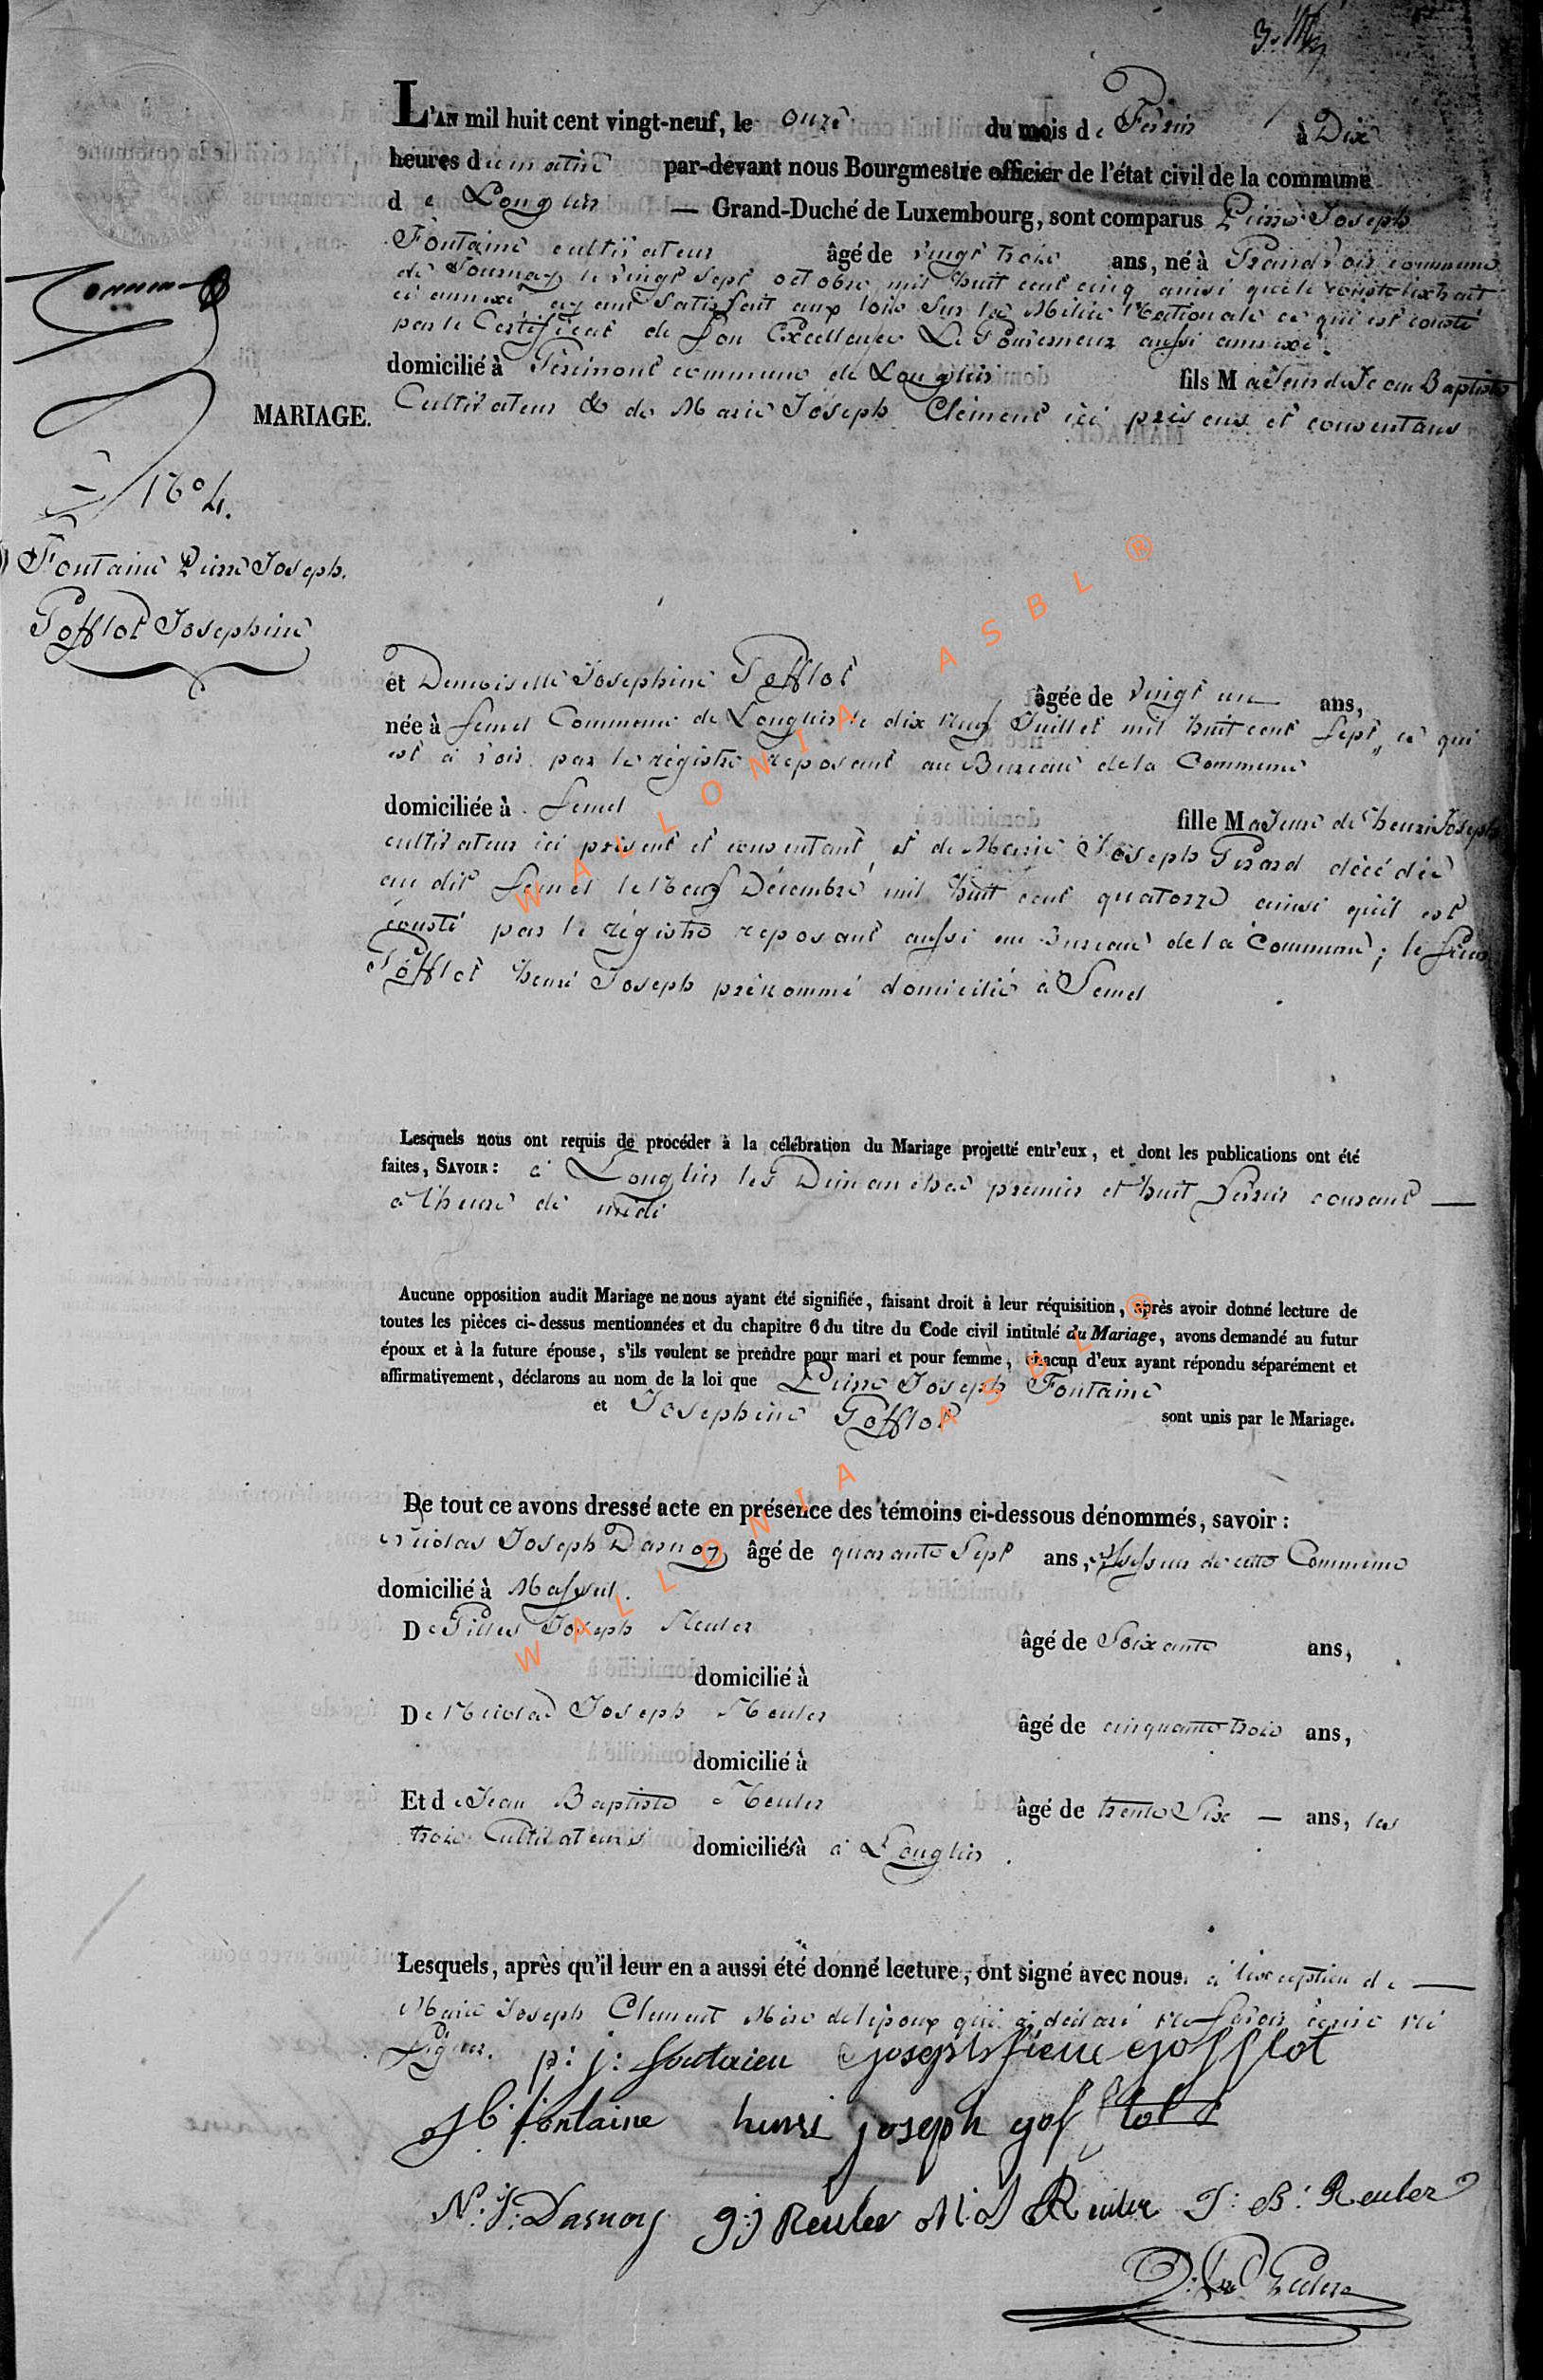 L'AN mil huit cent vingt-neuf, le onze du mois de Fevrier à Dix
heures du matin par-devant nous Bourgmestre officier de l'état civil de la commune
de Longlier — Grand-Duché de Luxembourg, sont comparus Pierre Joseph
Fontaine cultivateur âgé de vingt trois ans, né à Grandvoir commune
de Tournay le vingt sept octobre mil huit cent cinq ainsi que le conste l'extrait
ci annexé ayant satisfait aux lois sur la Milice Nationale ce qui est consté
par le Certificat de Son Excellence Le Gouverneur aussi annexé.
domicilié à Gérimont commune de Longlier fils Majeur de Jean Baptiste
MARIAGE.
Cultivateur & de Marie Joseph Clément ici présens et consentans
N° 4.
Fontaine Pierre Joseph.
Gofflot Josephine
et Demoiselle Josephine Gofflot âgée de vingt un ans,
née à Semel Commune de Longlier le dix neuf Juillet mil huit cent sept, ce qui
est à voir par le régistre reposant au Bureau de la Commune
domiciliée à Semel fille Majeure de henri Joseph
cultivateur ici présent et consentant, et de Marie Joseph Gerard décédée
au dit Semel le Neuf Décembre mil huit cent quatorze ainsi qu'il est
consté par le régistre reposant aussi au Bureau de la Commune; le sieur
Gofflot henri Joseph prénommé domicilié à Semel
Lesquels nous ont requis de procéder à la célébration du Mariage projetté entr'eux, et dont les publications ont été
faites, SAVOIR: à Longlier les Dimanches premier et huit Février courant —
à l'heure de midi
Aucune opposition audit Mariage ne nous ayant été signifiée, faisant droit à leur réquisition, après avoir donné lecture de
toutes les pièces ci-dessus mentionnées et du chapitre 6 du titre du Code civil intitulé du Mariage, avons demandé au futur
époux et à la future épouse, s'ils veulent se prendre pour mari et pour femme, chacun d'eux ayant répondu séparément et
affirmativement, déclarons au nom de la loi que Pierre Joseph Fontaine
et Josephine Gofflot sont unis par le Mariage.
De tout ce avons dressé acte en présence des témoins ci-dessous dénommés, savoir:
Nicolas Joseph Dasnoy âgé de quarante Sept ans, Assesseur de cette Commune
domicilié à Massul.
De Gilles Joseph Reuler âgé de Soixante ans,
domicilié à
De Nicolas Joseph Reuler âgé de cinquante trois ans,
domicilié à
Et de Jean Baptiste Reuler âgé de trente Six — ans, les
trois Cultivateurs domiciliés à à Longlier.
Lesquels, après qu'il leur en a aussi été donné lecture, ont signé avec nous à l'exception de —
Marie Joseph Clement Mère de l'époux qui a déclaré ne savoir écrire ni
Signer. p: j: fontaien josephfiene gofflot
J b fontaine henri joseph goflot
N: J: Dasnoy g: j Reuler N: J Reuler J: B: Reuler
WALLONIA ASBL ®
WALLONIA ASBL ®